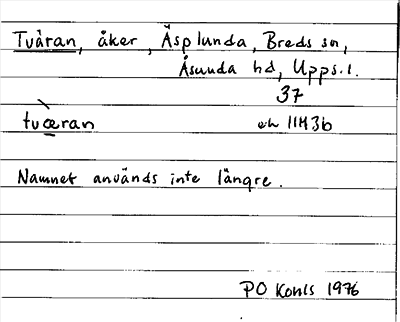 Tvåran, åker, Äsplunda, Breds sn,
Åsunda hd, Upps. l.
37
tvæ̀ran ek 11H3b
Namnet används inte längre.
PO Konls 1976